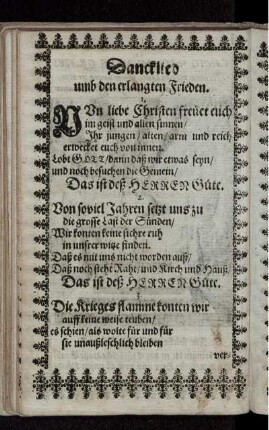 Dancklied
umb den erlangten Frieden.
1.
NUn liebe Christen freuet euch
im geist und allen sinnen/
Ihr jungen/ alten/ arm und reich
erwecket euch von innen.
Lobt GOTT/ dann daß wir etwas seyn/
und noch besuchen die Gemein/
Das ist deß HERREN Güte.
2.
Von soviel Jahren setzt uns zu
die grosse Last der Sünden/
Wir konten keine sichre ruh
in unsrer wige finden.
Daß es mit uns nicht worden auß/
Daß noch steht Raht/ und Kirch und Hauß/
Das ist deß HERREN Güte.
3.
Die Krieges flamme konten wir
auff keine weise
es schien/ als wolte für und für
sie unaußleschlich bleiben
ver-